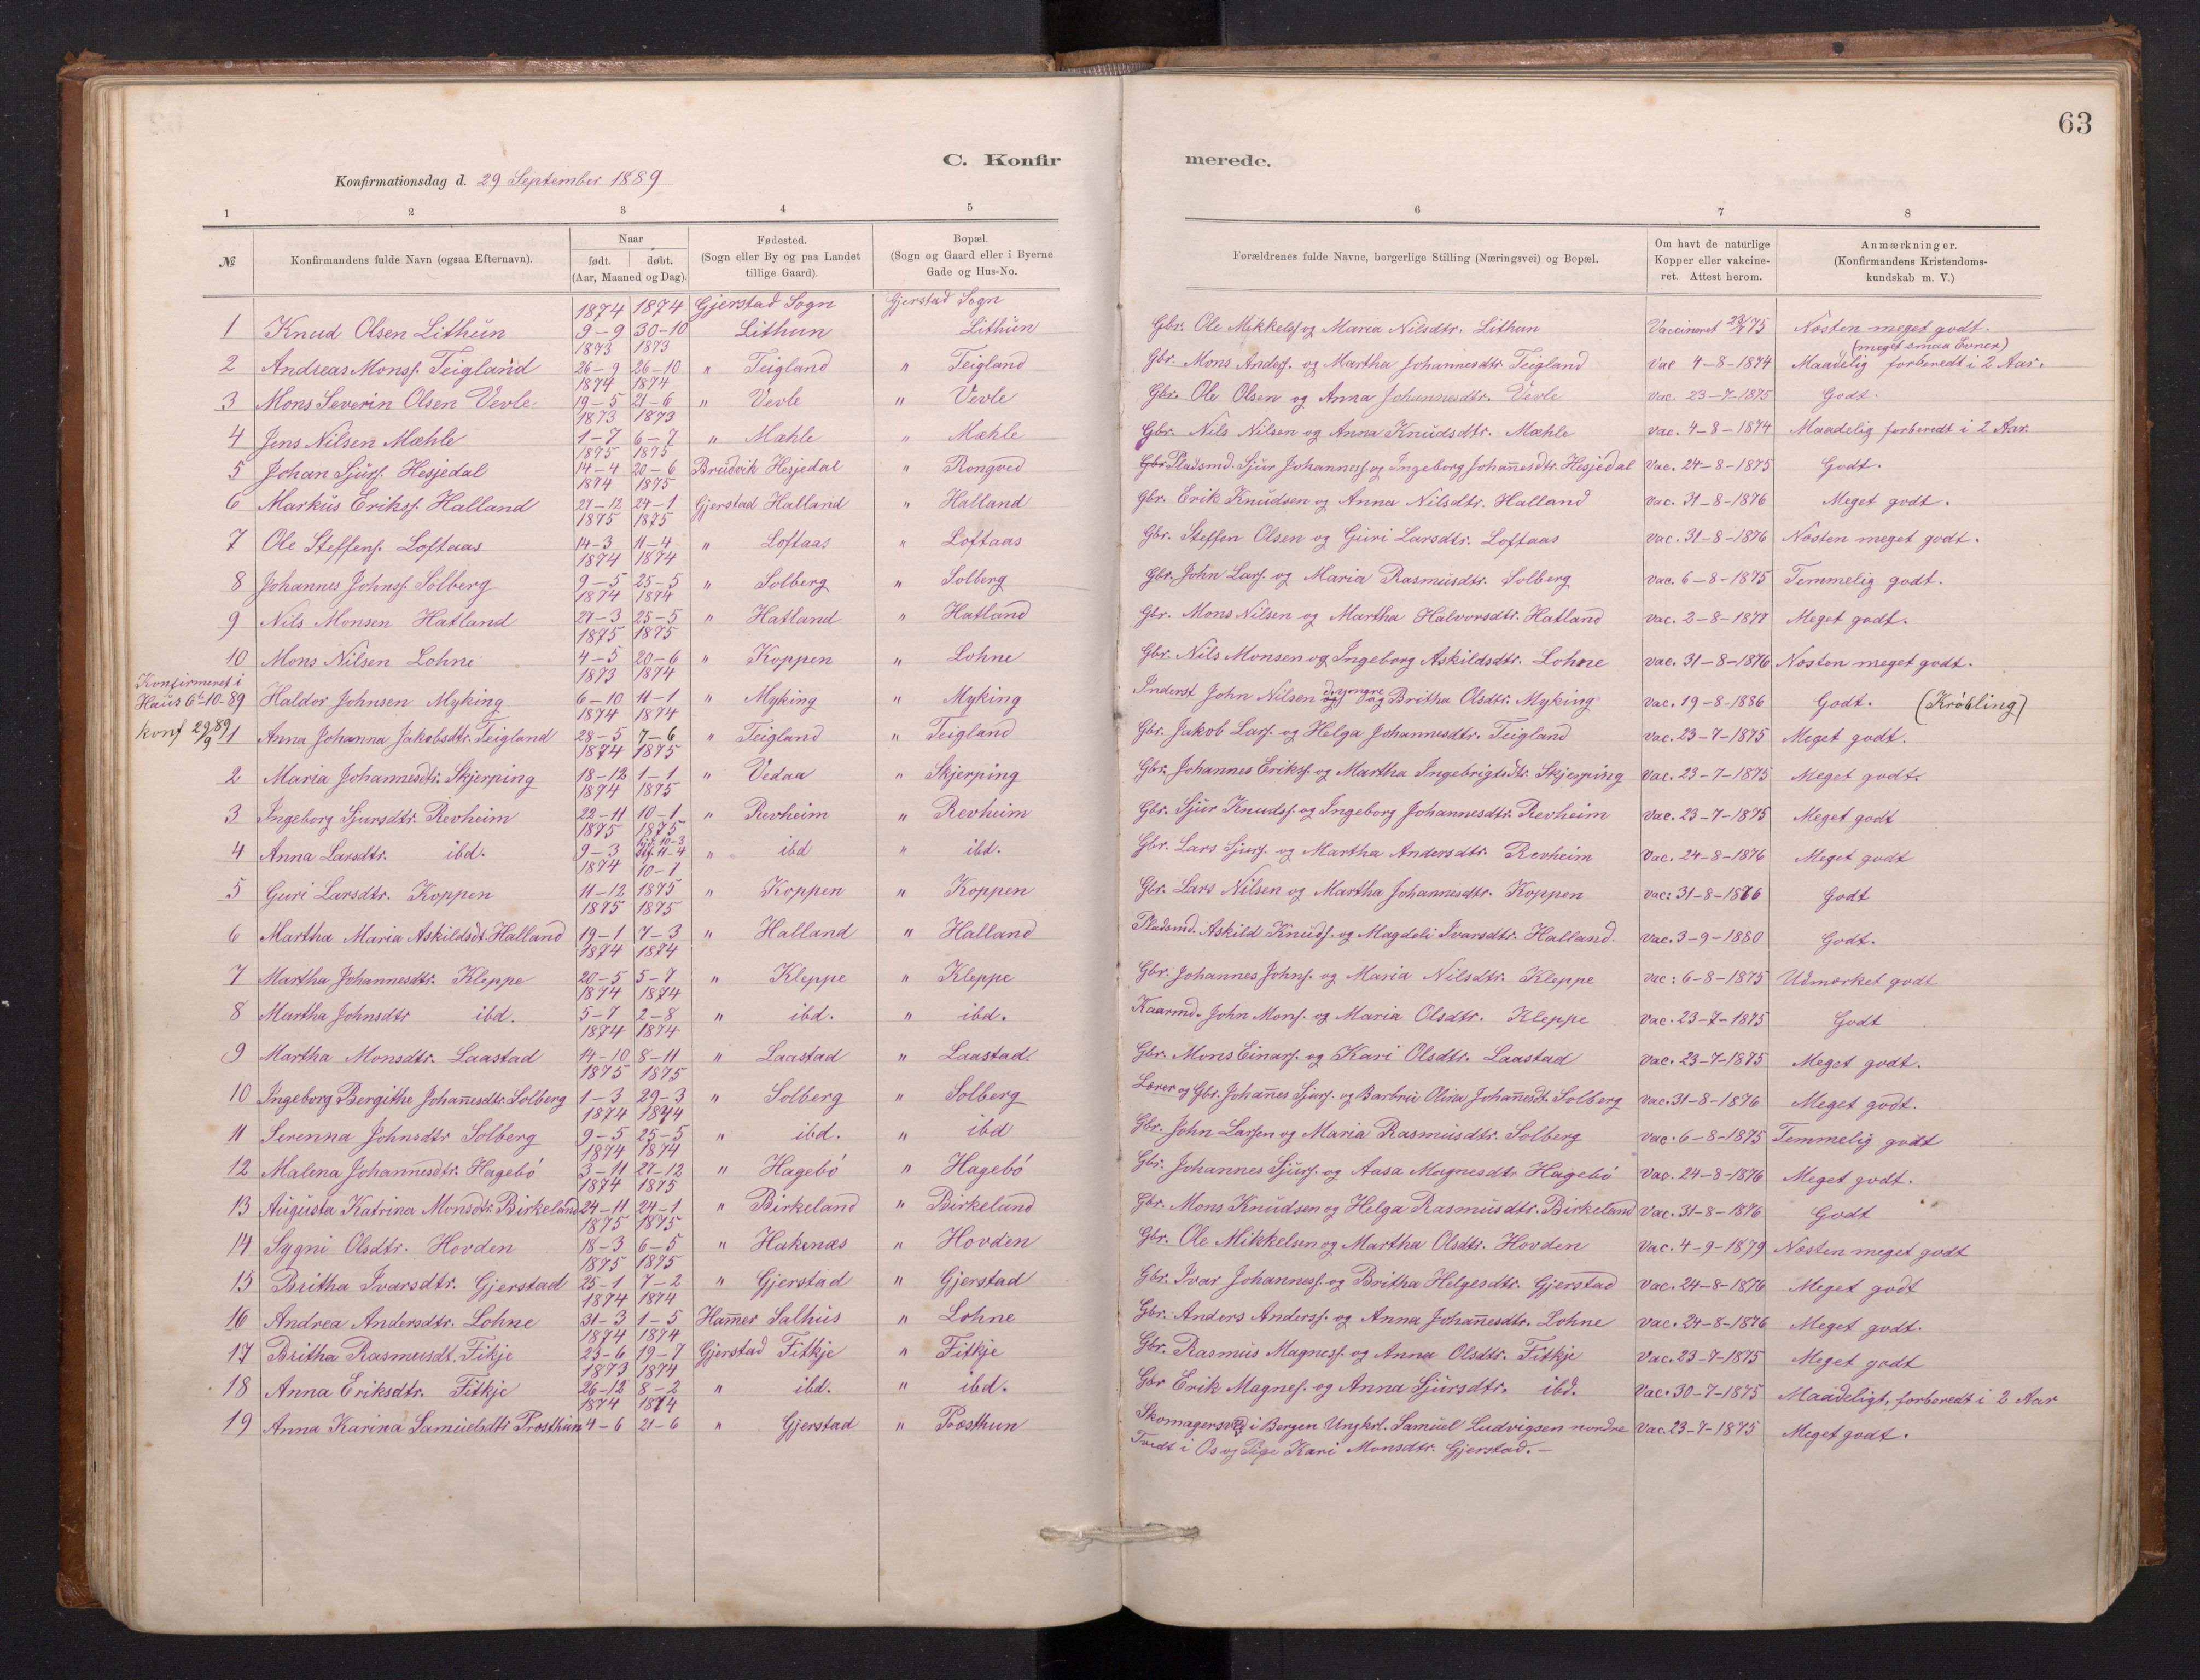 63
C. Konfirmerede.
Konfirmationsdag d. 29 September 1889
1 2 3 4 5 6 7 8
№ | Konfirmandens fulde Navn (ogsaa Efternavn). | Naar født. døbt. (Aar, Maaned og Dag). | Fødested. (Sogn eller By og paa Landet tillige Gaard). | Bopæl. (Sogn og Gaard eller i Byerne Gade og Hus-No. | Forældrenes fulde Navne, borgerlige Stilling (Næringsvei) og Bopæl. | Om havt de naturlige Kopper eller vakcineret. Attest herom. | Anmærkninger. (Konfirmandens Kristendomskundskab m. V.)
1 Knud Olsen Lithun 1874 9–9 1874 30–10 Gjerstad Sogn Lithun Gjerstad Sogn Lithun Gbr. Ole Mikkels. og Maria Nilsdtr. Lithun Vaccineret 23/7 75 Næsten meget godt.
2 Andreas Mons. Teigland 1873 26–9 1873 26–10 " Teigland " Teigland Gbr. Mons Anders. og Martha Johannesdtr. Teigland vac 4–8–1874 Maadelig (meget smaa Evner) forberedt i 2 Aar.
3 Mons Severin Olsen Vevle 1874 19–5 1874 21–6 " Vevle " Vevle Gbr. Ole Olsen og Anna Johannesdtr. Vevle vac. 23–7–1875 Godt.
4 Jens Nilsen Mæhle 1873 1–7 1873 6–7 " Mæhle " Mæhle Gbr. Nils Nilsen og Anna Knudsdtr. Mæhle vac. 4–8–1874 Maadelig forberedt i 2 Aar
5 Johan Sjurs. Hesjedal 1875 14–4 1875 20–6 Brudvik Hesjedal " Rongved Gbr Pladsmd. Sjur Johanness. og Ingeborg Johannesdtr. Hesjedal vac. 24–8–1875 Godt.
6 Markus Eriks. Halland 1874 27–12 1875 24–1 Gjerstad Halland " Halland Gbr. Erik Knudsen og Anna Nilsdtr. Halland vac. 31–8–1876 Meget godt.
7 Ole Steffens. Loftaas 1875 14–3 1875 11–4 " Loftaas " Loftaas Gbr. Steffen Olsen og Guri Larsdtr. Loftaas vac. 31–8–1876 Næsten meget godt.
8 Johannes Johns. Solberg 1874 9–5 1874 25–5 " Solberg " Solberg Gbr. John Lars. og Maria Rasmusdtr. Solberg vac. 6–8–1875 Temmelig godt.
9 Nils Monsen Hatland 1874 27–3 1874 25–5 " Hatland " Hatland Gbr. Mons Nilsen og Martha Halvorsdtr. Hatland vac. 2–8–1877 Meget godt.
10 Mons Nilsen Lohne 1875 4–5 1875 20–6 " Koppen " Lohne Gbr. Nils Monsen og Ingeborg Askildsdtr. Lohne vac. 31–8–1876 Næsten meget godt.
Konfirmeret i Haus 6t–10–89 Haldor Johnsen Myking 1873 6–10 1874 11–1 " Myking " Myking Inderst John Nilsen d. yngre og Britha Olsdtr. Myking vac. 19–8–1886 Godt. (Krøbling)
konf 29/9 89
1 Anna Johanna Jakobsdtr. Teigland 1874 28–5 1874 7–6 " Teigland " Teigland Gbr. Jakob Lars. og Helga Johannesdtr. Teigland vac. 23–7–1875 Meget godt.
2 Maria Johannesdtr. Skjerping 1874 18–12 1875 1–1 " Vedaa " Skjerping Gbr. Johannes Eriks. og Martha Ingebrigdsdtr. Skjerping vac. 23–7–1875 Meget godt.
3 Ingeborg Sjursdtr. Revheim 1874 22–11 1875 10–1 " Revheim " Revheim Gbr. Sjur Knuds. og Ingeborg Johannesdtr. Revheim vac. 23–7–1875 Meget godt
4 Anna Larsdtr. ibd. 1875 9–3 1875 hjd. 10–3 Stf. 11–4 " ibd " ibd. Gbr. Lars Sjurs. og Martha Andersdtr. Revheim vac. 24–8–1876 Meget godt
5 Guri Larsdtr. Koppen 1874 11–12 10–1 1875 " Koppen " Koppen Gbr. Lars Nilsen og Martha Johannesdtr. Koppen vac: 31–8–1876 Godt
6 Martha Maria Askildsdt. Halland 1875 19–1 1875 7–3 " Halland " Halland Pladsmd. Askild Knuds. og Magdeli Ivarsdtr. Halland. vac. 3–9–1880 Godt.
7 Martha Johannesdtr. Kleppe 1874 20–5 1874 5–7 " Kleppe " Kleppe Gbr. Johannes Johns. og Maria Nilsdtr. Kleppe vac: 6–8–1875 Udmærket godt
8 Martha Johnsdtr ibd. 1874 5–7 1874 2–8 " ibd. " ibd. Kaarmd. John Mons. og Maria Olsdtr. Kleppe vac. 23–7–1875 Godt
9 Martha Monsdtr. Laastad 1874 14–10 1874 8–11 " Laastad " Laastad. Gbr. Mons Einars. og Kari Olsdtr. Laastad vac. 23–7–1875 Meget godt.
10 Ingeborg Bergithe Johannesdtr. Solberg 1875 1–3 1875 29–3 " Solberg " Solberg Lærer og Gbr. Johannes Sjurs. og Barbru Olina Johannesdt. Solberg vac. 31–8–1876 Meget godt.
11 Serenna Johnsdtr Solberg 1874 9–5 1874 25–5 " ibd. " ibd Gbr. John Larsen og Maria Rasmusdtr. Solberg vac. 6–8–1875 Temmelig godt
12 Malena Johannesdtr. Hagebó 1874 3–11 1874 27–12 " Hagebó " Hagebó Gbr. Johannes Sjurs. og Aasa Magnesdtr Hagebó vac. 24–8–1876 Meget godt.
13 Augusta Katrina Monsdtr. Birkeland 1874 24–11 1875 24–1 " Birkeland " Birkeland Gbr. Mons Knudsen og Helga Rasmusdtr. Birkeland vac. 31–8–1876 Godt
14 Sygni Olsdtr. Hovden 1875 18–3 1875 6–5 " Hakenæs " Hovden Gbr. Ole Mikkelsen og Martha Olsdtr. Hovden vac. 4–9–1879 Næsten meget godt
15 Britha Ivarsdtr. Gjerstad 1875 25–1 1875 7–2 " Gjerstad " Gjerstad Gbr. Ivar Johanness. og Britha Helgesdtr. Gjerstad vac. 24–8–1876 Meget godt
16 Andrea Andersdtr. Lohne 1874 31–3 1874 1–5 Hammer Salhus " Lohne Gbr. Anders Anderss. og Anna Johannesdtr. Lohne vac. 24–8–1876 Meget godt.
17 Britha Rasmusdt. Fikje 1874 23–6 1874 19–7 Gjerstad Fitkje " Fitkje Gbr. Rasmus Magness. og Anna Olsdtr. Fitkje vac. 23–7–1875 Meget godt
18 Anna Eriksdtr. Fitkje 1873 26–12 1874 8–2 " ibd. " ibd. Gbr Erik Magnes. og Anna Sjursdtr. ibd. vac. 30–7–1875 Maadeligt, forberedt i 2 Aar
19 Anna Karina Samuelsdtr Prosthun 1874 4–6 1874 21–6 " Gjerstad " Prosthun Skomagersv i Bergen Ungkrl. Samuel Ludvigsen nordre Tvedt i Os og Pige Kari Monsdtr. Gjerstad.– vac. 23–7–1875 Meget godt.